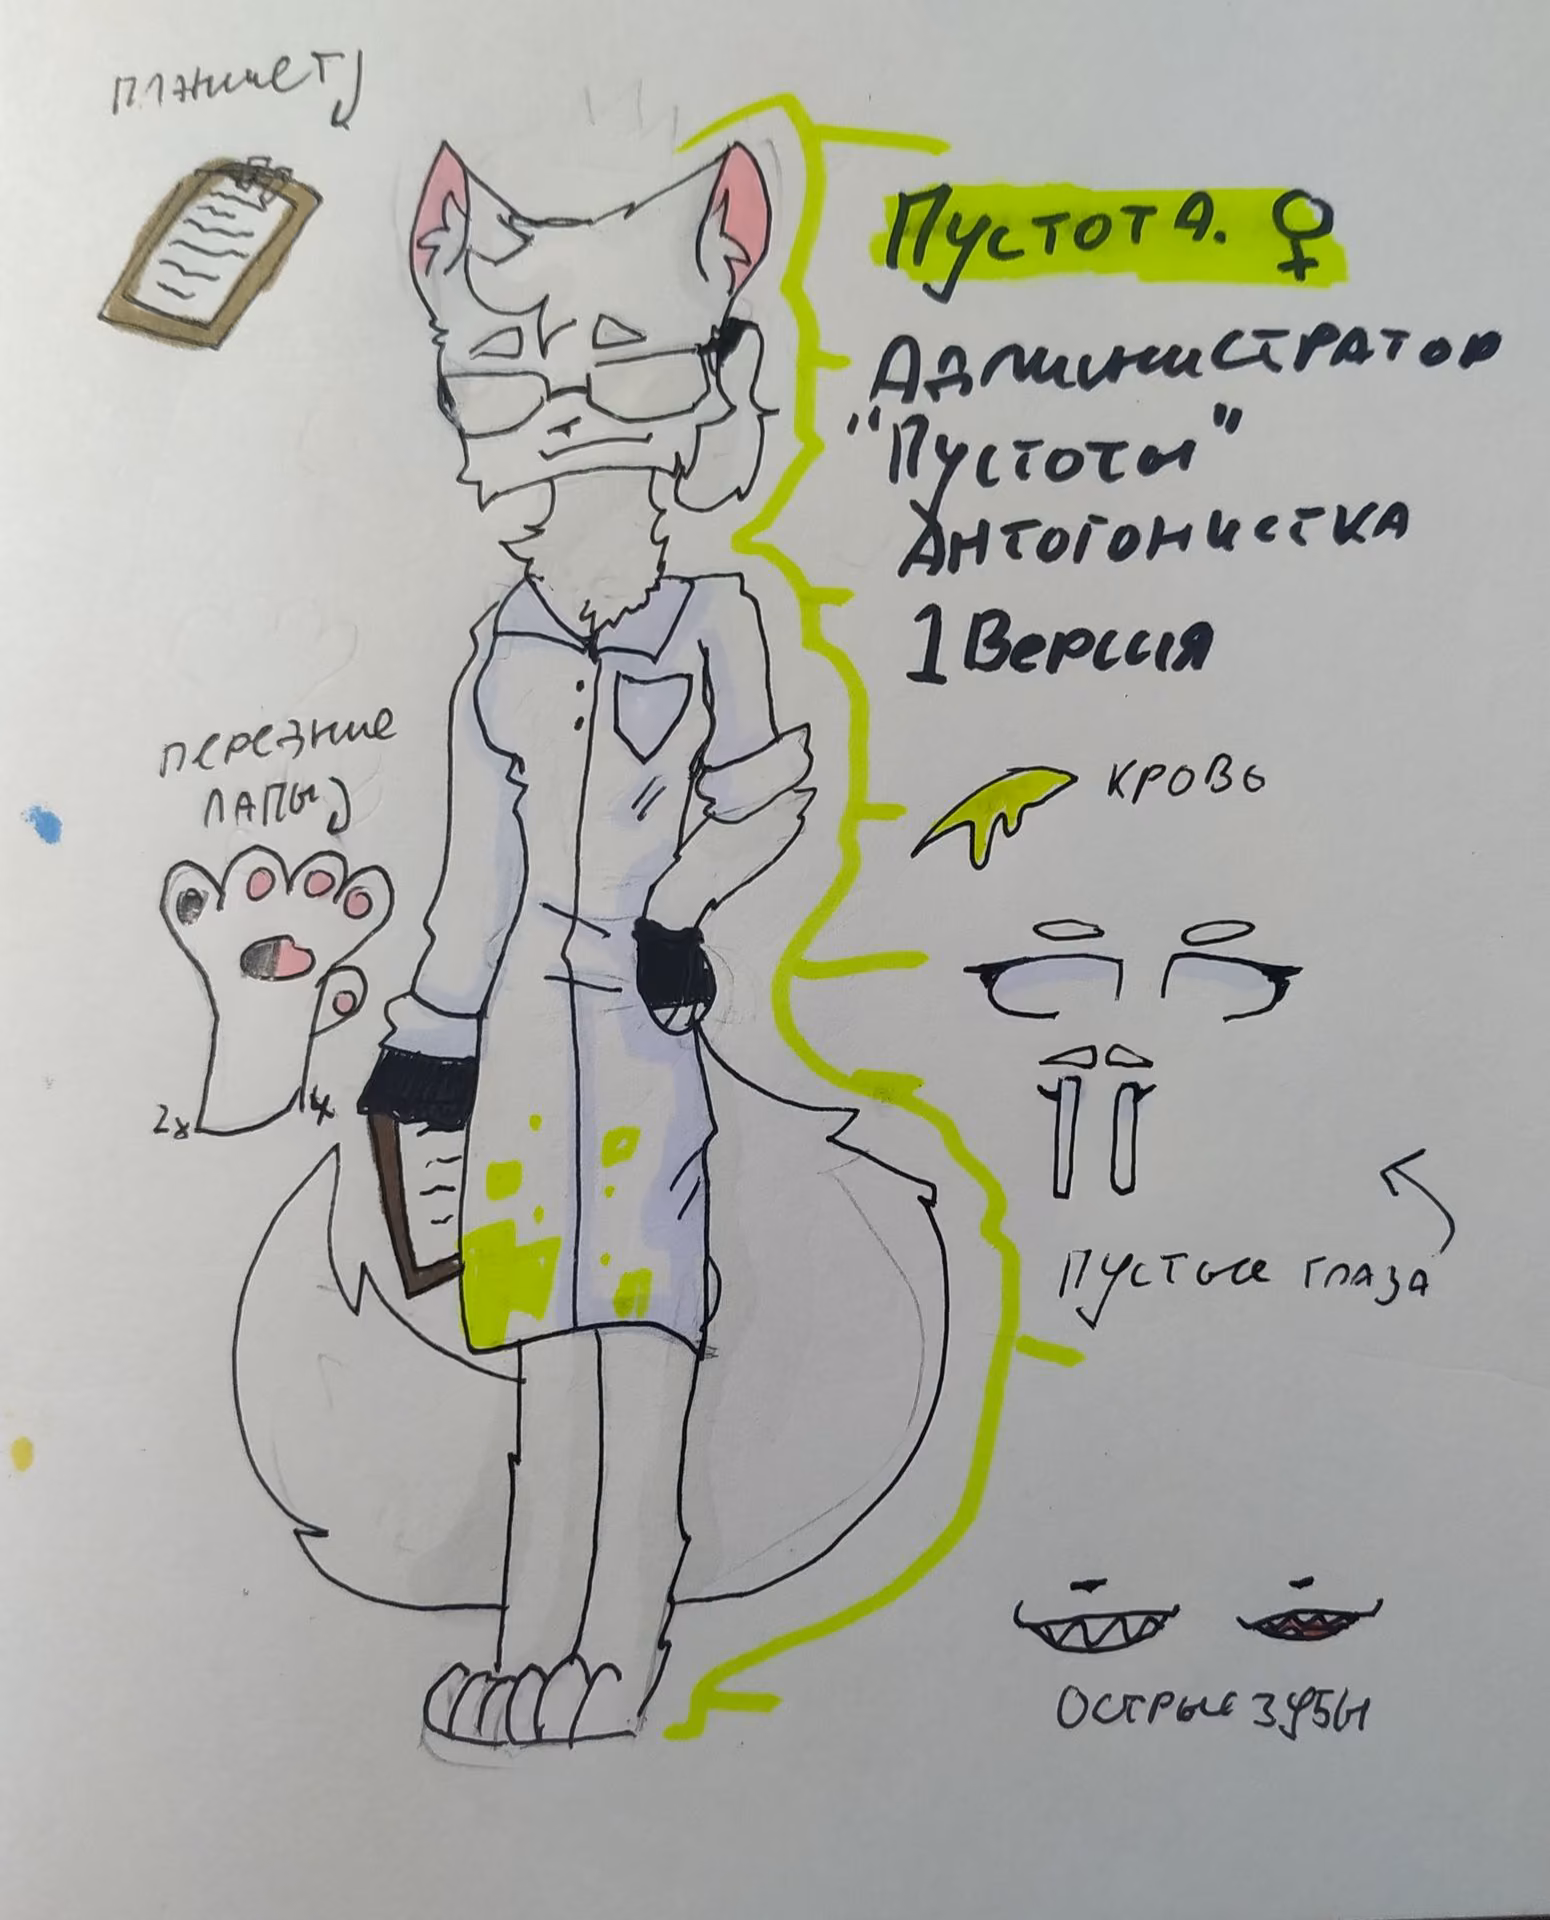 планшет
Пустота. ♀
Администратор
"Пустоты"
Антогонистка
1 Версия
передние
лапы
кровь
2х
4х
Пустые глаза
острые зубы